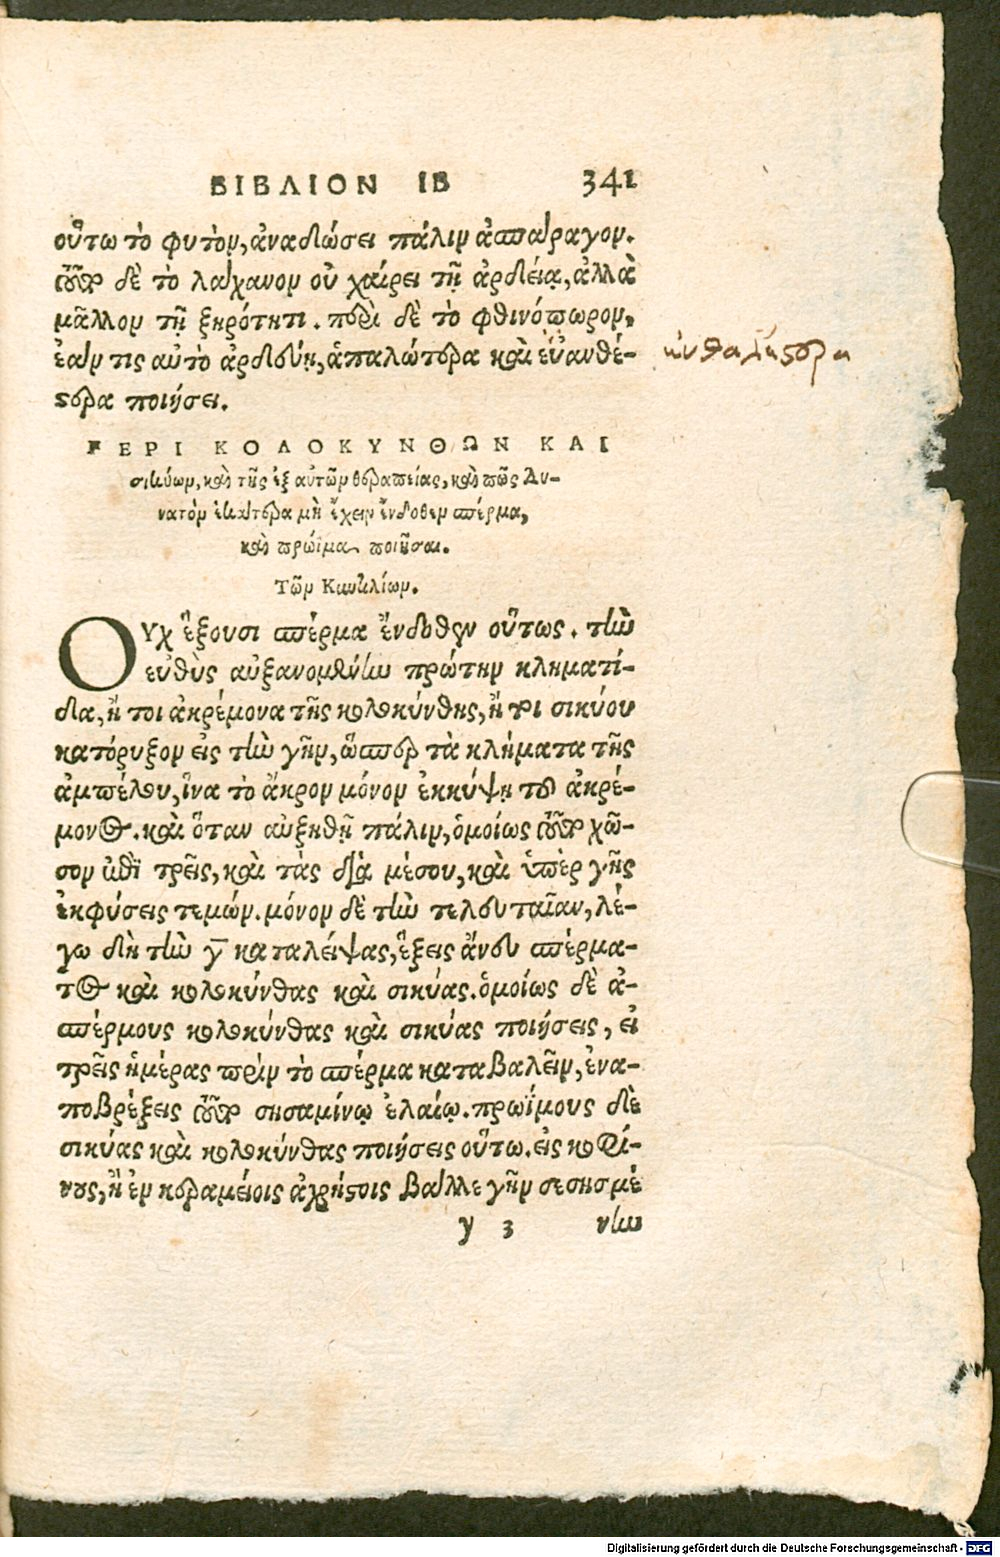 ΒΙΒΛΙΟΝ ΙΒ 341
οὕτω τὸ φυτὸν, ἀναδώσει πάλιν ἀσπάραγον.
τοῦτο δὲ τὸ λάχανον οὐ χαίρει τῇ ἀρδείᾳ, ἀλλὰ
μᾶλλον τῇ ξηρότητι. περὶ δὲ τὸ φθινόπωρον,
ἐάν τις αὐτὸ ἀρδεύῃ, ἁπαλώτερα καὶ εὐανθέ-
στερα ποιήσει.
ΠΕΡΙ ΚΟΛΟΚΥΝΘΩΝ ΚΑΙ
σικύων, καὶ τῆς ἐξ αὐτῶν θεραπείας, καὶ πῶς δυ-
νατὸν ἑκάτερα μὴ ἔχειν ἔνδοθεν σπέρμα,
καὶ πρώϊμα ποιῆσαι.
Τῶν Κυϊντιλίων.
ΟΥΧ ἕξουσι σπέρμα ἔνδοθεν οὕτως. τὴν
εὐθὺς αὐξανομένην πρώτην κληματί-
δα, ἤ τοι ἀκρέμονα τῆς κολοκύνθης, ἤ τοι σικύου
κατόρυξον εἰς τὴν γῆν, ὥσπερ τὰ κλήματα τῆς
ἀμπέλου, ἵνα τὸ ἄκρον μόνον ἐκκύψῃ τοῦ ἀκρέ-
μονος. καὶ ὅταν αὐξηθῇ πάλιν, ὁμοίως τοῦτο χῶ-
σον ἐπὶ τρεῖς, καὶ τὰς διὰ μέσου, καὶ ὑπὲρ γῆς
ἐκφύσεις τεμών. μόνον δὲ τὴν τελευταῖαν, λέ-
γω δὴ τὴν γ̅ καταλείψας, ἕξεις ἄνευ σπέρμα-
τος καὶ κολοκύνθας καὶ σικύας. ὁμοίως δὲ ἀ-
σπέρμους κολοκύνθας καὶ σικύας ποιήσεις, εἰ
τρεῖς ἡμέρας πρὶν τὸ σπέρμα καταβαλεῖν, ἐνα-
ποβρέξεις τοῦτο σησαμίνῳ ἐλαίῳ. πρωΐμους δὲ
σικύας καὶ κολοκύνθας ποιήσεις οὕτω. εἰς κοφί-
νους, ἢ ἐν κεραμείοις ἀχρήστοις βάλλε γῆν σεσησμέ
y 3 νην